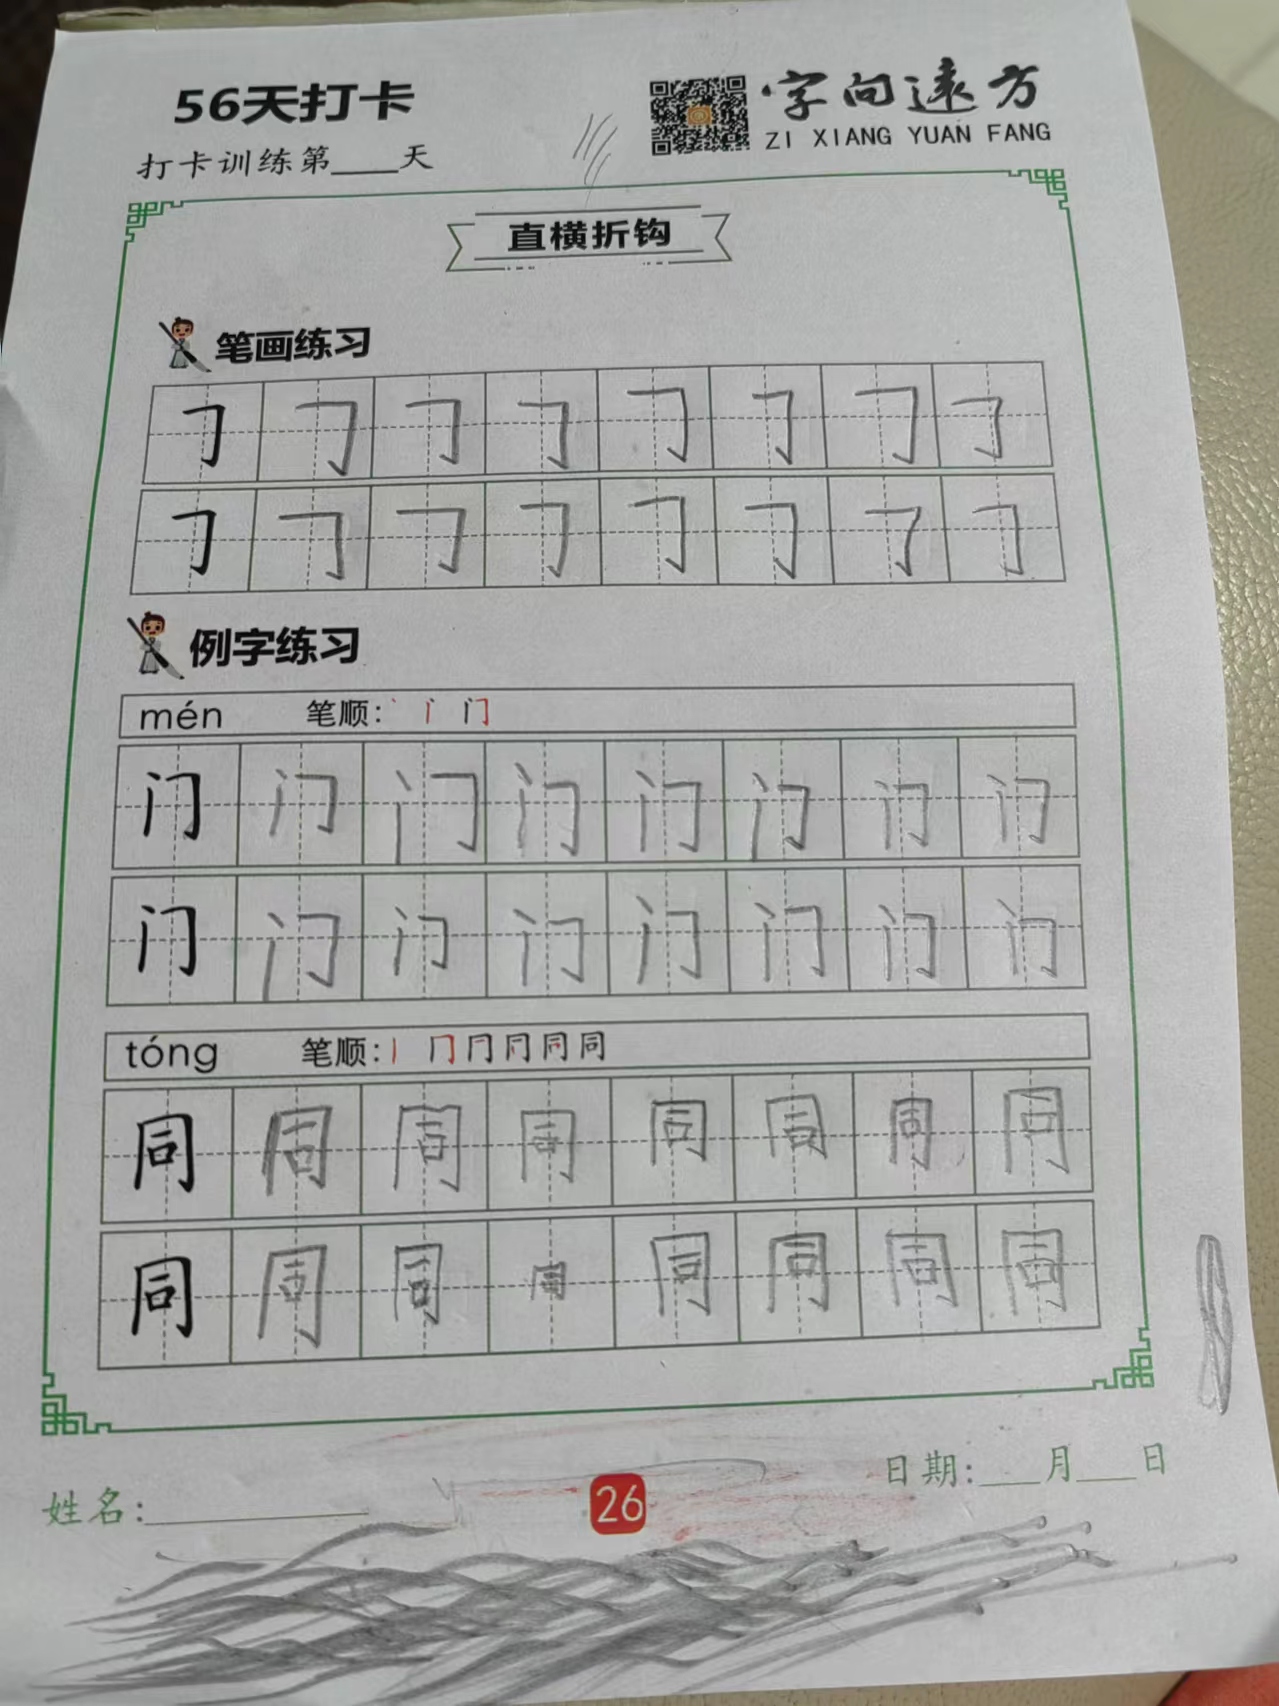 56天打卡
字向远方
ZI XIANG YUAN FANG
打卡训练第____天
直横折钩
笔画练习
𠃌 𠃌 𠃌 𠃌 𠃌 𠃌 𠃌 𠃌
𠃌 𠃌 𠃌 𠃌 𠃌 𠃌 𠃌 𠃌
例字练习
mén 笔顺: 丶 门
门 门 门 门 门 门 门 门
门 门 门 门 门 门 门 门
tóng 笔顺: 丨 冂 同
同 同 同 同 同 同 同 同
同 同 同 同 同 同 同 同
姓名:
26
日期:___月___日